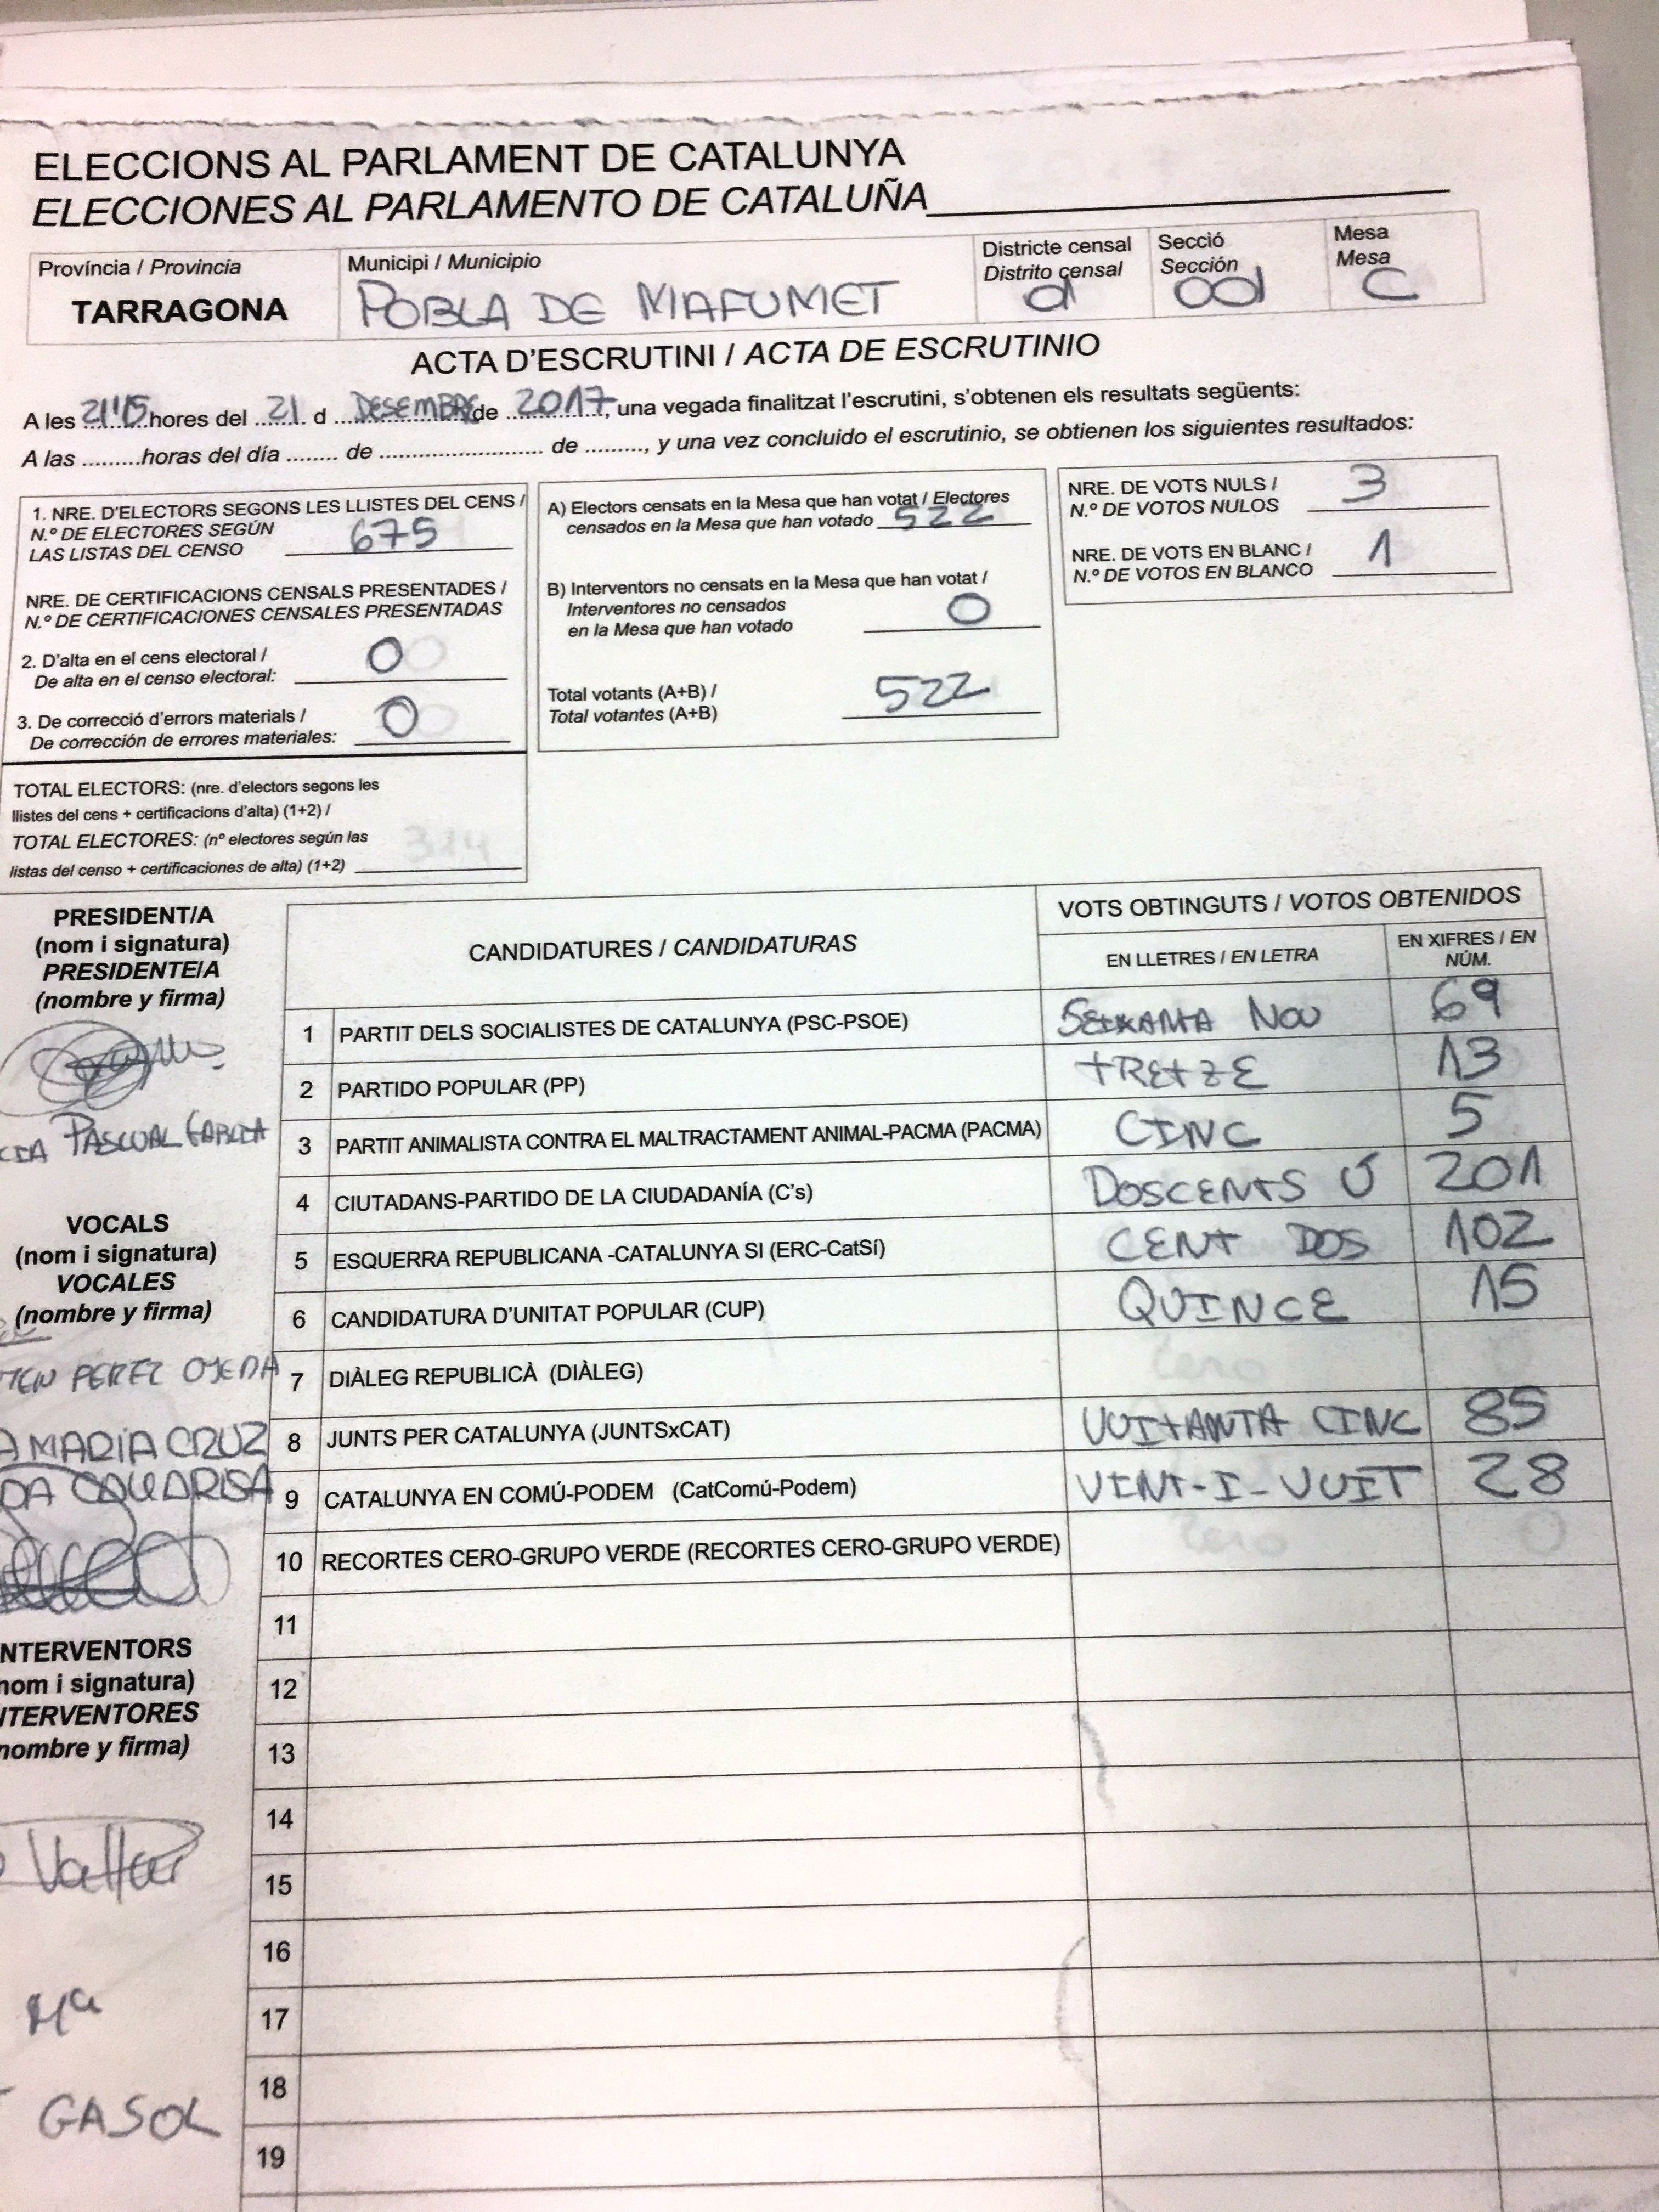 ELECCIONS AL PARLAMENT DE CATALUNYA
ELECCIONES AL PARLAMENTO DE CATALUÑA
Província / Provincia
TARRAGONA
Municipi / Municipio
POBLA DE MAFUMET
Districte censal
Distrito censal
01
Secció
Sección
001
Mesa
Mesa
C
ACTA D'ESCRUTINI / ACTA DE ESCRUTINIO
A les 21'15 hores del 21 d DESEMBRE de 2017, una vegada finalitzat l'escrutini, s'obtenen els resultats següents:
A las .........horas del día ........ de ......................... de ........., y una vez concluido el escrutinio, se obtienen los siguientes resultados:
1. NRE. D'ELECTORS SEGONS LES LLISTES DEL CENS /
N.º DE ELECTORES SEGÚN
LAS LISTAS DEL CENSO 675
NRE. DE CERTIFICACIONS CENSALS PRESENTADES /
N.º DE CERTIFICACIONES CENSALES PRESENTADAS
2. D'alta en el cens electoral /
De alta en el censo electoral: 0
3. De correcció d'errors materials /
De corrección de errores materiales: 0
TOTAL ELECTORS: (nre. d'electors segons les
llistes del cens + certificacions d'alta) (1+2) /
TOTAL ELECTORES: (nº electores según las
listas del censo + certificaciones de alta) (1+2)
A) Electors censats en la Mesa que han votat / Electores
censados en la Mesa que han votado 522
B) Interventors no censats en la Mesa que han votat /
Interventores no censados
en la Mesa que han votado 0
Total votants (A+B) /
Total votantes (A+B) 522
NRE. DE VOTS NULS /
N.º DE VOTOS NULOS 3
NRE. DE VOTS EN BLANC /
N.º DE VOTOS EN BLANCO 1
PRESIDENT/A
(nom i signatura)
PRESIDENTE/A
(nombre y firma)
PASCUAL GARCIA
VOCALS
(nom i signatura)
VOCALES
(nombre y firma)
PEREZ OJEDA
MARIA CRUZ
INTERVENTORS
nom i signatura)
NTERVENTORES
nombre y firma)
Mª
GASOL
CANDIDATURES / CANDIDATURAS
VOTS OBTINGUTS / VOTOS OBTENIDOS
EN LLETRES / EN LETRA
EN XIFRES / EN
NÚM.
1 PARTIT DELS SOCIALISTES DE CATALUNYA (PSC-PSOE) SEIXANTA NOU 69
2 PARTIDO POPULAR (PP) TRETZE 13
3 PARTIT ANIMALISTA CONTRA EL MALTRACTAMENT ANIMAL-PACMA (PACMA) CINC 5
4 CIUTADANS-PARTIDO DE LA CIUDADANÍA (C's) DOSCENTS Ú 201
5 ESQUERRA REPUBLICANA -CATALUNYA SI (ERC-CatSí) CENT DOS 102
6 CANDIDATURA D'UNITAT POPULAR (CUP) QUINCE 15
7 DIÀLEG REPUBLICÀ (DIÀLEG) Zero
8 JUNTS PER CATALUNYA (JUNTSxCAT) VUITANTA CINC 85
9 CATALUNYA EN COMÚ-PODEM (CatComú-Podem) VINT-I-VUIT 28
10 RECORTES CERO-GRUPO VERDE (RECORTES CERO-GRUPO VERDE) Zero 0
11
12
13
14
15
16
17
18
19